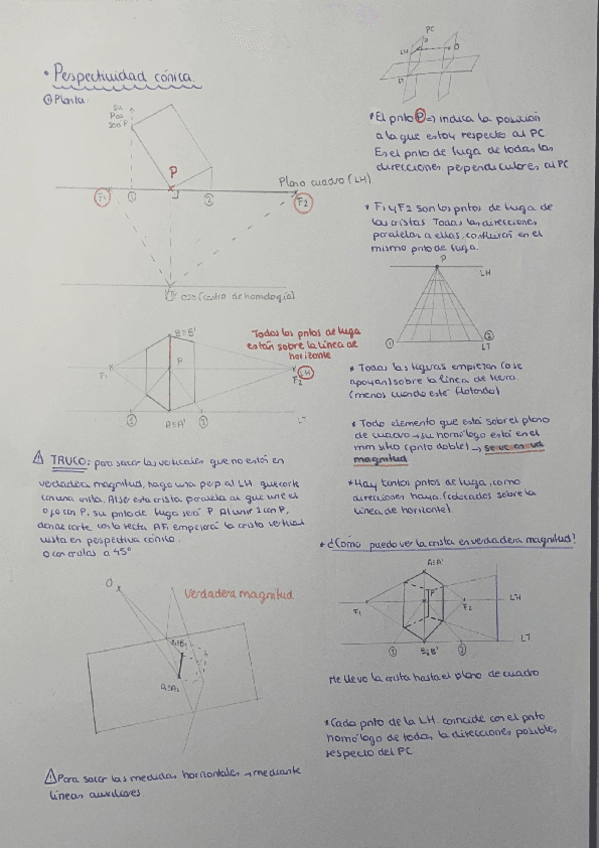 • Pespectividad cónica.
① Planta:
su
Pos
son P
P
Plano cuadro (LH)
F1
①
②
F2
O
ojo (centro de homología)
B≡B'
Todos los pntos de fuga
están sobre la línea de
horizonte
P
F1
F2
LH
A≡A'
①
②
LT
⚠ TRUCO: para sacar las verticales que no están en
verdadera magnitud, hago una perp al LH que corte
con una arista.
ojo con P, su pnto de fuga será P. Al unir 1 con P,
donde corte con la recta AF1 empezará la arista vertical
vista en perspectiva cónica.
a 45º
O
Verdadera magnitud
⚠ Para sacar las medidas horizontales → mediante
líneas auxiliares.
PC
LH
P
O
LT
* El pnto P → indica la posición
a la que estoy respecto al PC
Es el pnto de fuga de todas las
direcciones perpendiculares al PC
* F1 y F2 son los pntos de fuga de
las aristas. Todas las direcciones
paralelas a ellas, confluirán en el
mismo pnto de fuga.
P
LH
①
②
LT
* Todas las figuras empiezan (o se
apoyan) sobre la línea de tierra
(menos cuando esté flotando)
* Todo elemento que está sobre el plano
de cuadro → su homólogo está en el
mm sitio (pnto doble) → se ve en vd
magnitud
* Hay tantos pntos de fuga, como
direcciones haya. (colocados sobre la
línea de horizonte)
* ¿Cómo puedo ver la arista en verdadera magnitud?
A≡A'
P
F1
F2
LH
B≡B'
①
②
LT
Me llevo la arista hasta el plano de cuadro
* Cada pnto de la LH coincide con el pnto
homólogo de todas la direcciones posibles,
respecto del PC